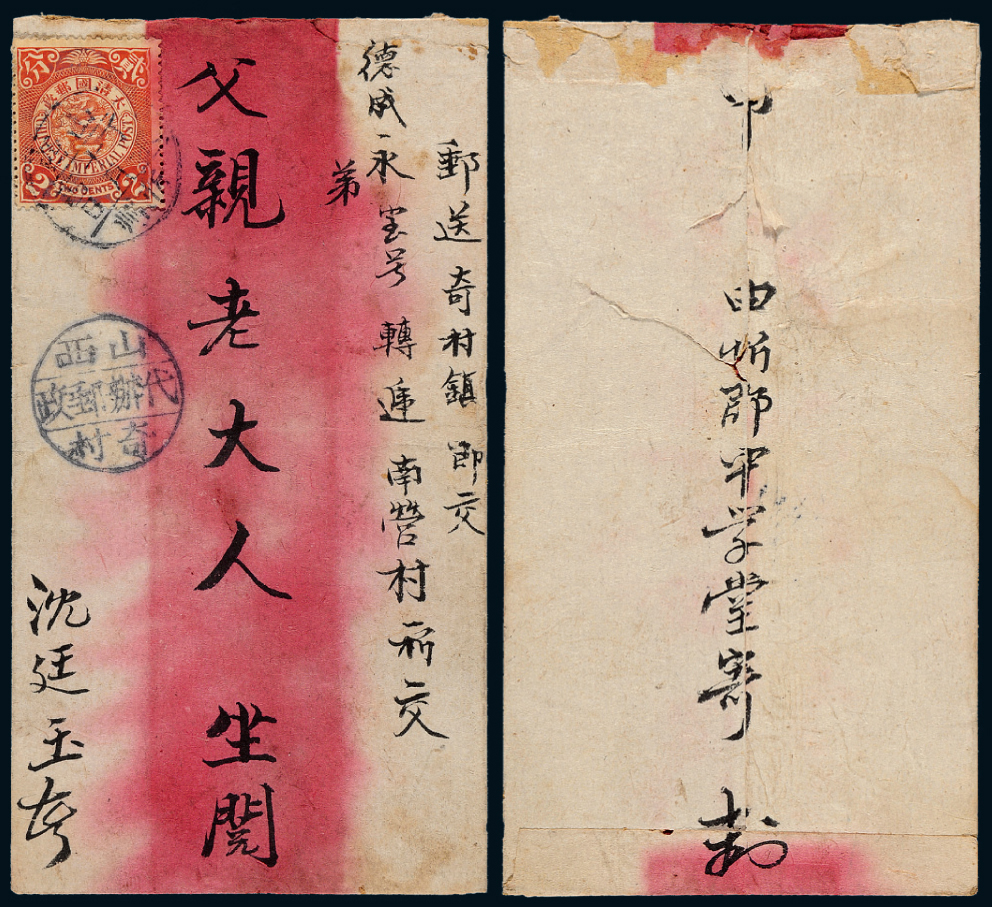 郵送奇村鎮即交
德成永宝号轉遞南營村祈交
父親老大人坐閱
沈廷玉
貳分
大清國郵政
IMPERIAL POST
2 TWO CENTS 2
山西
代辦郵政
奇村
由忻郡中学堂寄
封